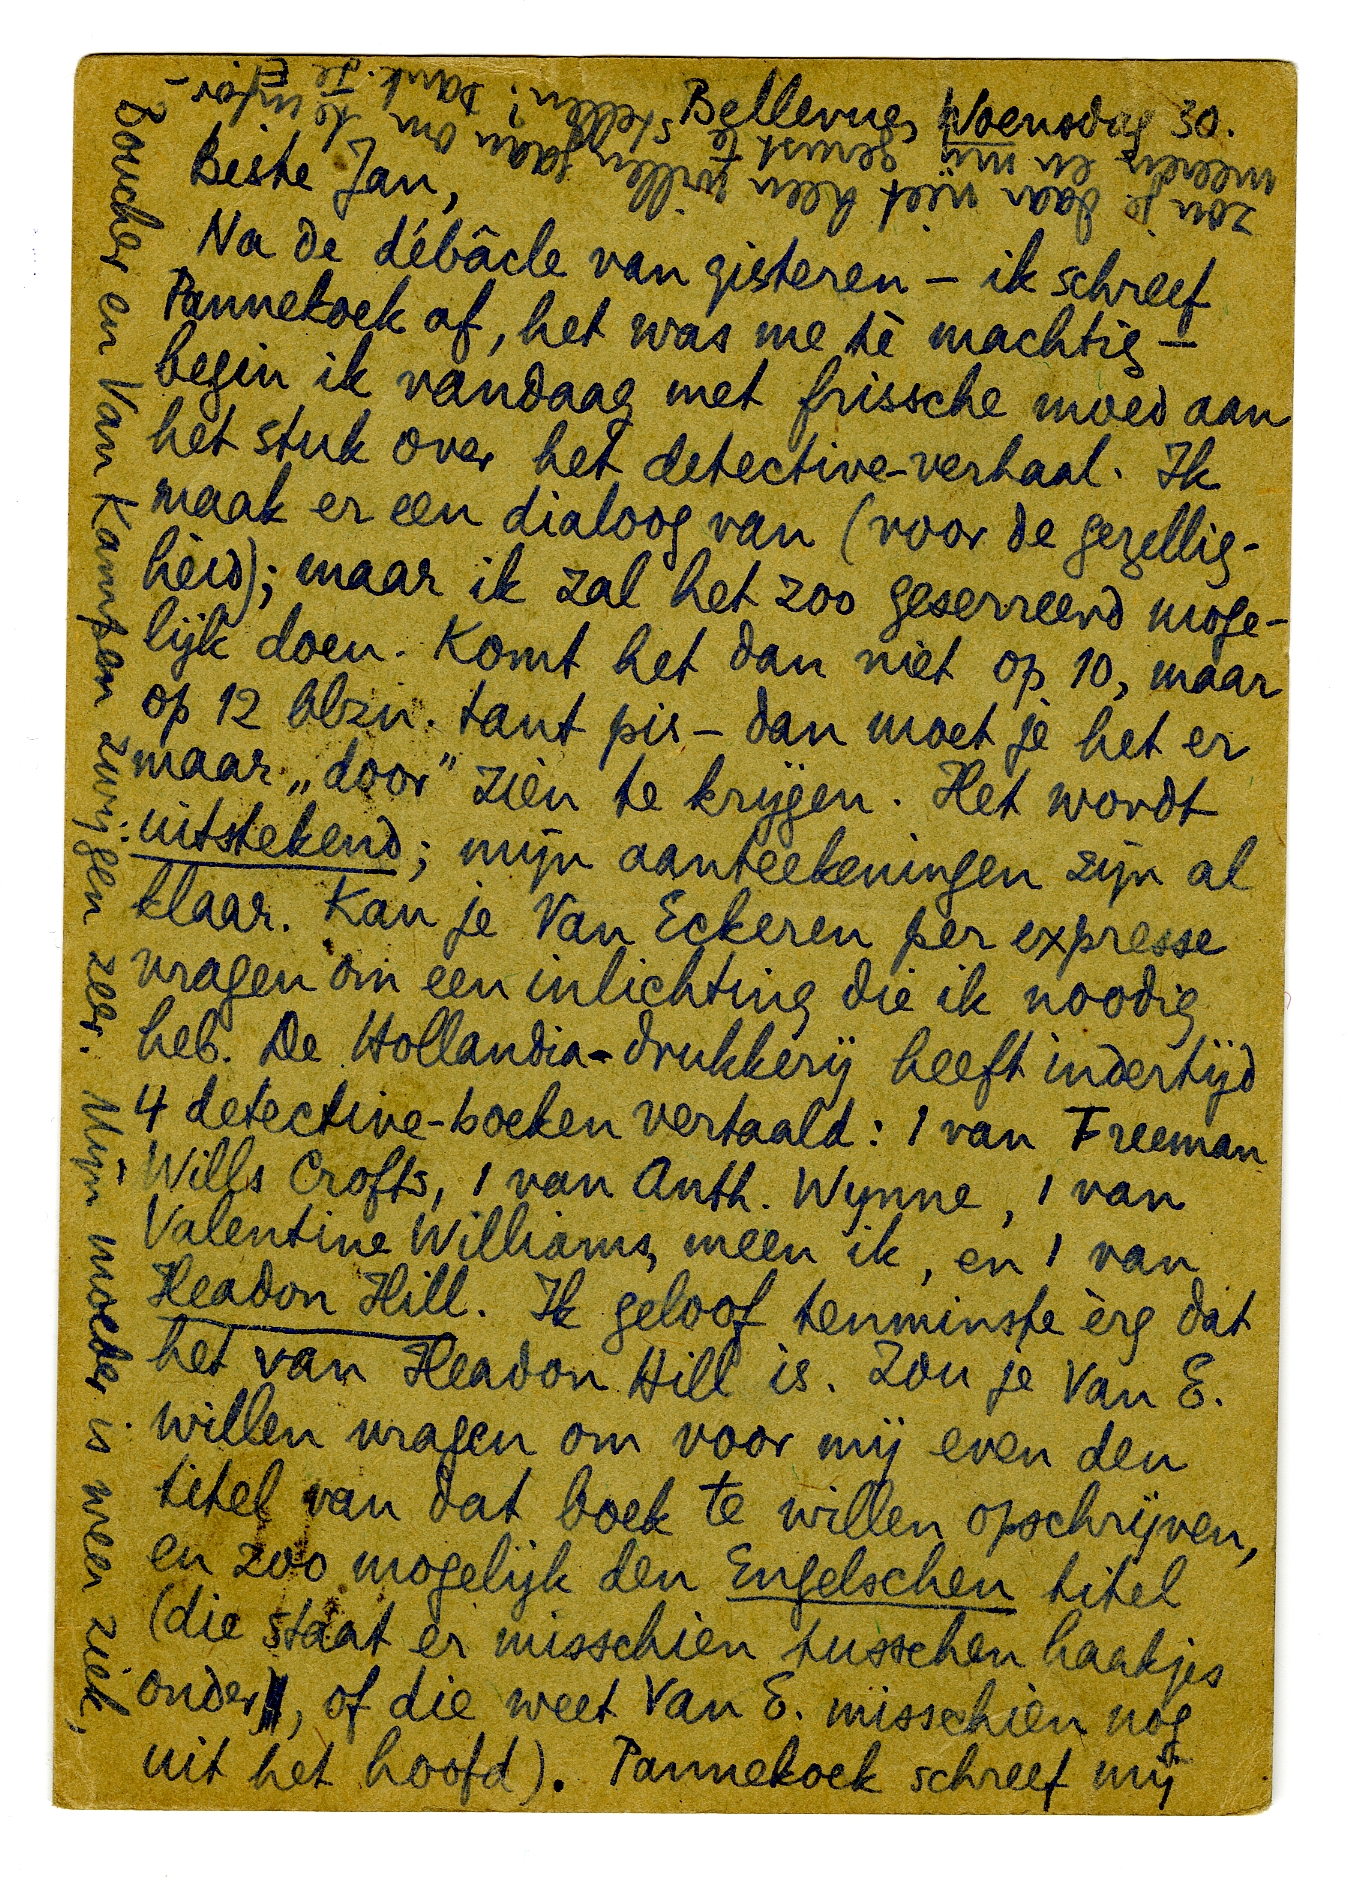 Bellevue, Woensdag 30.
Beste Jan,
Na de débâcle van gisteren — ik schreef
Pannekoek af, het was me tè machtig —
begin ik vandaag met frissche moed aan
het stuk over het detective-verhaal. Ik
maak er een dialoog van (voor de gezellig-
heid); maar ik zal het zoo geserreerd moge-
lijk doen. Komt het dan niet op 10, maar
op 12 blzn. tant pis — dan moet je het er
maar „door” zien te krijgen. Het wordt
uitstekend; mijn aanteekeningen zijn al
klaar. Kan je Van Eckeren per expresse
vragen om een inlichting die ik noodig
heb. De Hollandia-drukkerij heeft indertijd
4 detective-boeken vertaald: 1 van Freeman
Wills Crofts, 1 van Anth. Wynne, 1 van
Valentine Williams, meen ik, en 1 van
Headon Hill. Ik geloof tenminste èrg dat
het van Headon Hill is. Zou je Van E.
willen vragen om voor mij even den
titel van dat boek te willen opschrijven,
en zoo mogelijk den Engelschen titel
(die staat er misschien tusschen haakjes
onder, of die weet Van E. misschien nog
uit het hoofd). Pannekoek schreef mij
Boucher en Van Kampen zwijgen zeer. Mijn moeder is weer ziek,
zou je daar niet heen willen gaan om te infor-
meeren en mij gerust te stellen? Dank. Je E